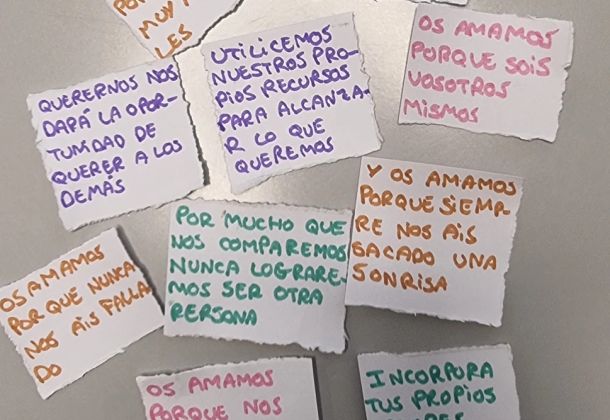 MUY
LES
QUERERNOS NOS
DARÁ LA OPOR-
TUNIDAD DE
QUERER A LOS
DEMÁS
UTILICEMOS
NUESTROS PRO-
PIOS RECURSOS
PARA ALCANZA-
R LO QUE
QUEREMOS
OS AMAMOS
PORQUE SOIS
VOSOTROS
MISMOS
Y OS AMAMOS
PORQUE SIEMP-
RE NOS AIS
SACADO UNA
SONRISA
POR MUCHO QUE
NOS COMPAREMOS
NUNCA LOGRARE-
MOS SER OTRA
PERSONA
OS AMAMOS
POR QUE NUNCA
NOS AIS FALLA
DO
OS AMAMOS
PORQUE NOS
INCORPORA
TUS PROPIOS